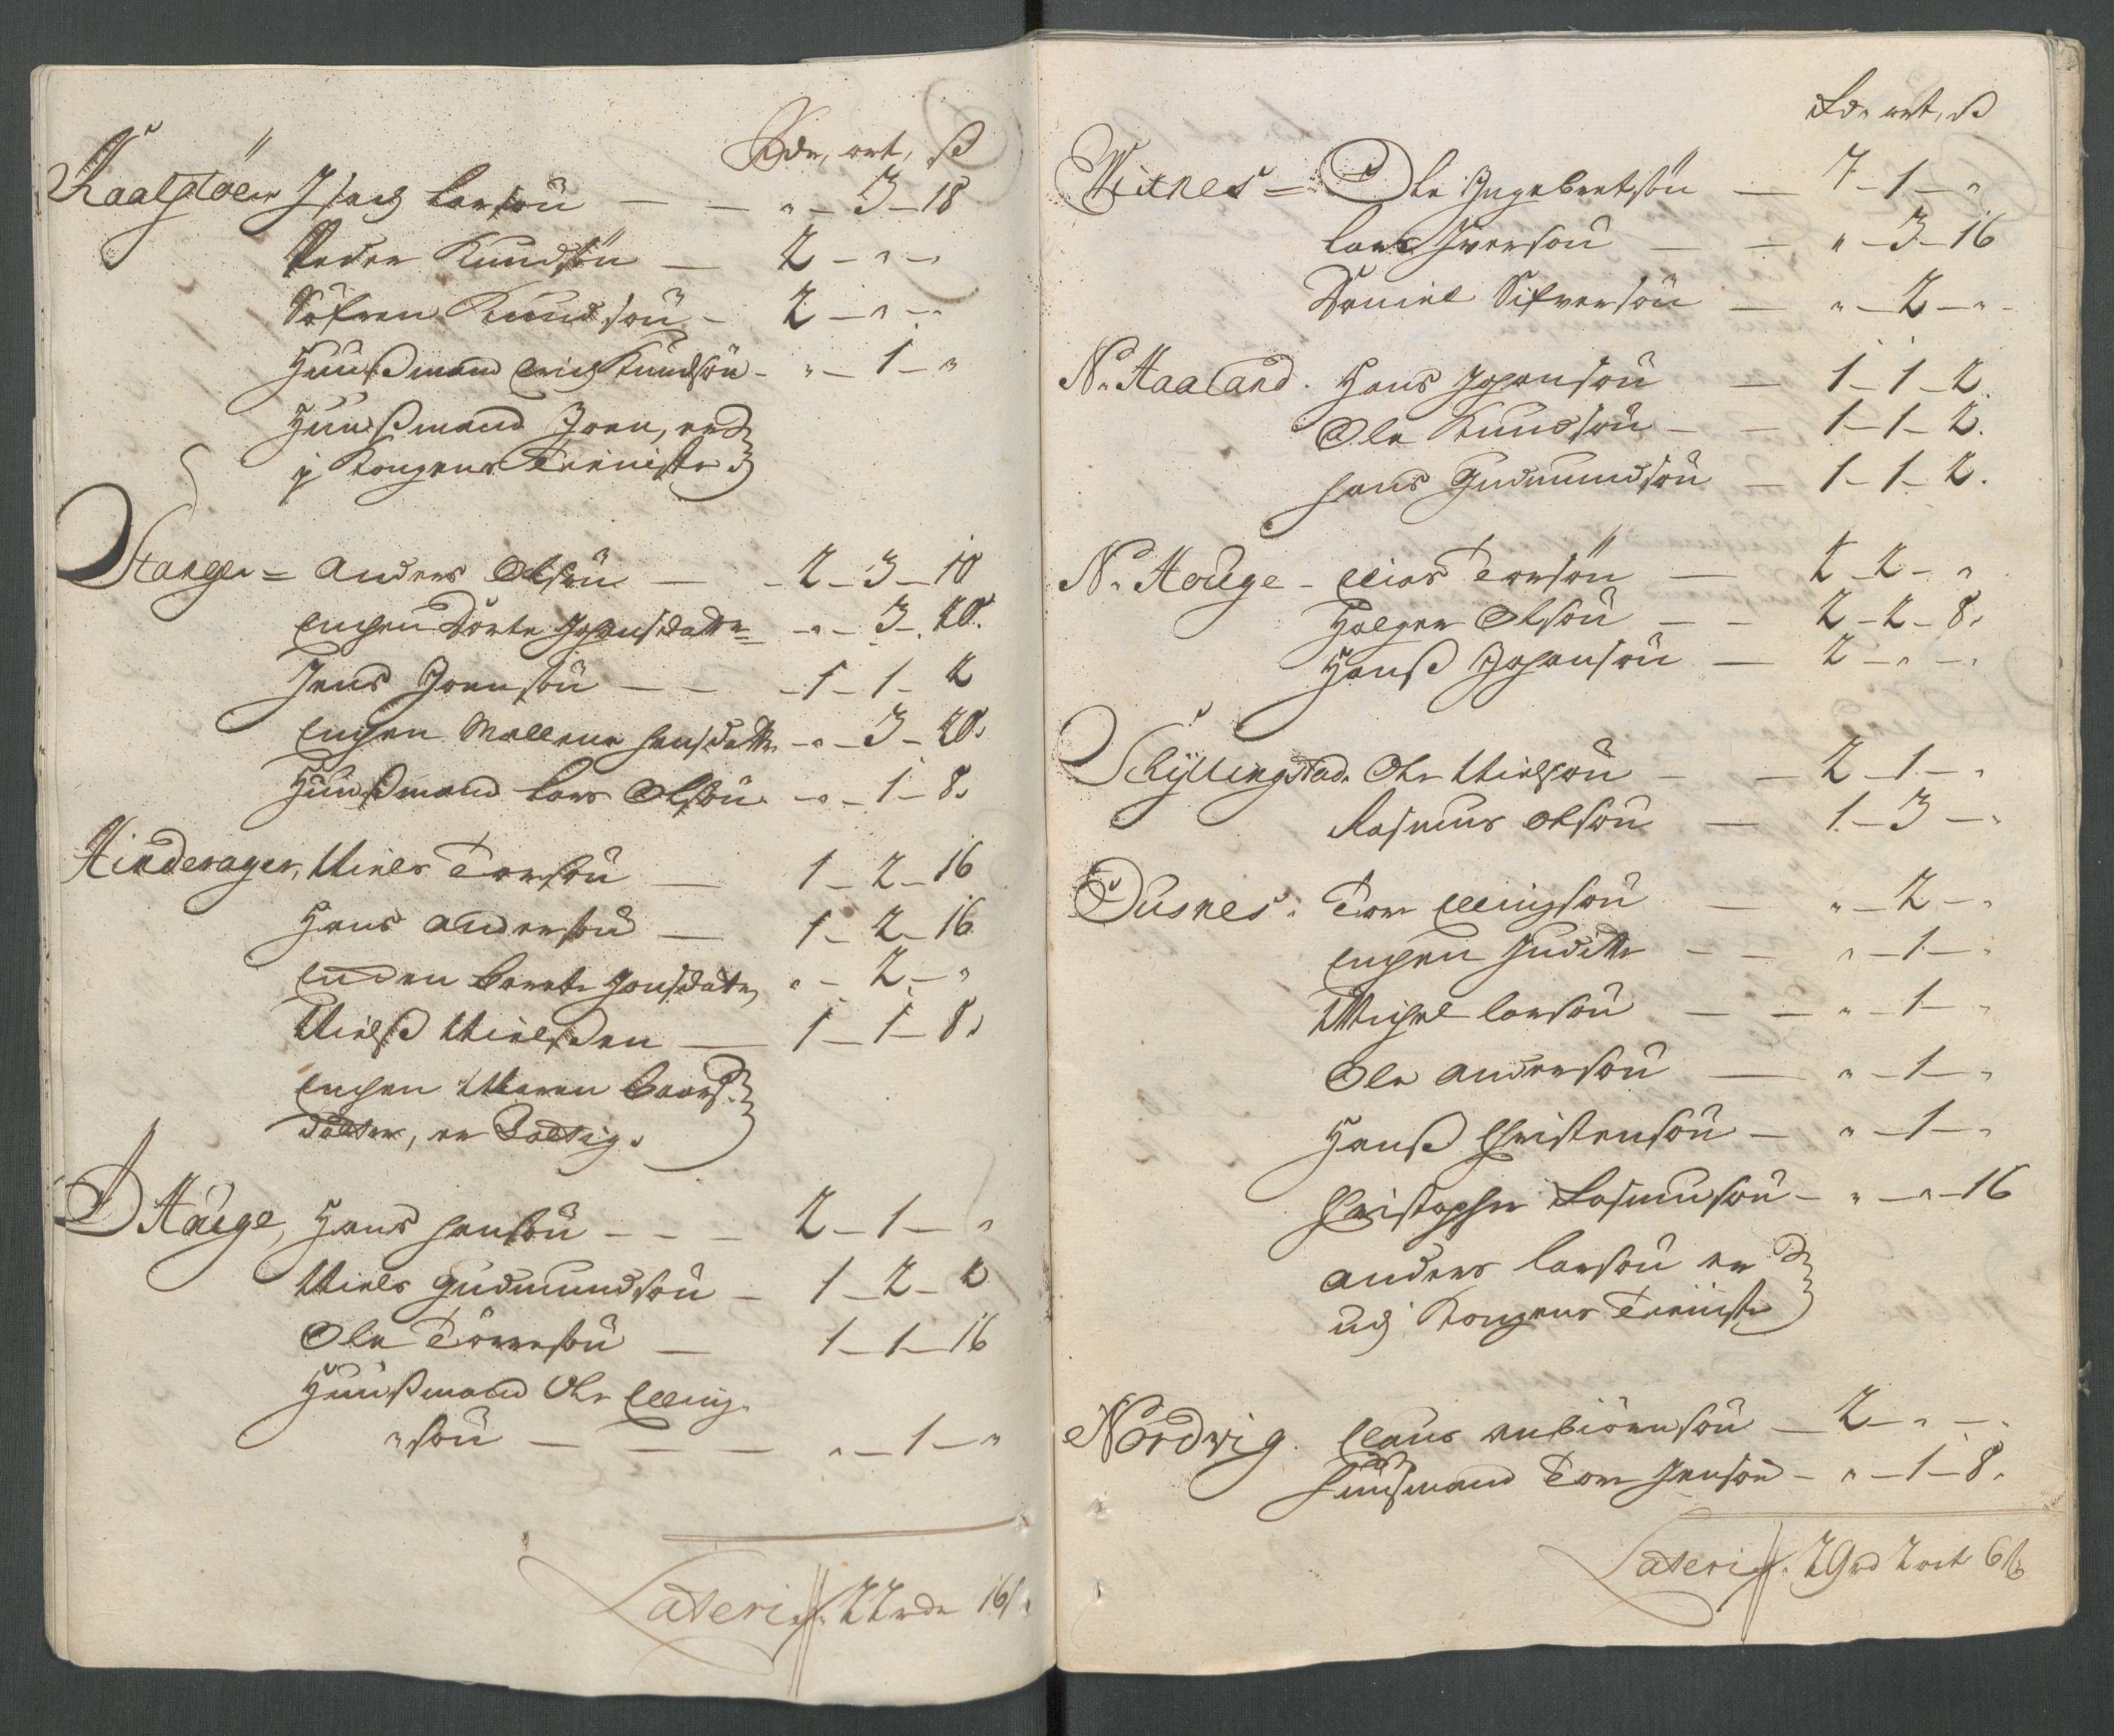 Rdr, ort, ß
Kaalgiöen Isach Larsøn — — " — 3 — 18
Peder Knudsøn — 2 — " — "
Söfren Knudsøn — 2 — " — "
Huusßmand Erich Knudsøn — " — 1 — "
Huusßmand Joen, er
i Kongens Tieniste
Stange = Anders Olsøn — 2 — 3 — 10
Enchen Dorte Johansdatter — " — 3 — 20.
Jens Joensøn — — 1 — 1 — 2
Enchen Mallene Hansdatter — " — 3 — 20.
Huusßmand Lars Olsøn — " — 1 — 8.
Hinderager, Niels Torsøn — 1 — 2 — 16
Hans Andersøn — 1 — 2 — 16
Enchen Berete Jonsdatter " — 2 — "
Nielß Nielsßen — 1 — 1 — 8.
Enchen Maren
datter, er
Hauge, Hans Hansøn — — — 2 — 1 — "
Niels Gudmundsøn — 1 — 2 —
Ole Törresøn — 1 — 1 — 16
Huusßmand Ole Elling-
"søn — — — " — 1 — "
Lateris. 22 rdr 16 ß.
Rdr ort, ß
Witnes = Ole Ingebretsøn — 7 — 1 — "
Lars Iversøn — — " — 3 — 16
Daniel Sifversøn — " — 2 — "
N. Haaland. Hans Johansøn — 1 — 1 — 2.
Ole Knudsøn — — 1 — 1 — 2.
Hans Gudmundsøn — 1 — 1 — 2.
N. Houge — Elias Torsøn — 2 — 2 — "
Holger Olsøn — — 2 — 2 — 8.
Hanß Johansøn — 2 — " — "
Schyllingstad. Ole Nielsøn — — 2 — 1 — "
Rasmus Olsøn — 1 — 3 — "
Dusnes. Tore Ellingsøn — " — 2 — "
Enchen Judithe — — " — 1 — "
Michel Larsøn — — " — 1 — "
Ole Andersøn — " — 1 — "
Hanß Christensøn — " — 1 — "
Christopher Rasmusøn — " — " — 16
Anders Larsøn er
udj Kongens Tieniste
Nordwig. Claus Anbiörnsøn — 2 — " — "
Huusmand Tore Jensøn — " — 1 — 8.
Lateris. 29 rd 2 ort 6 ß